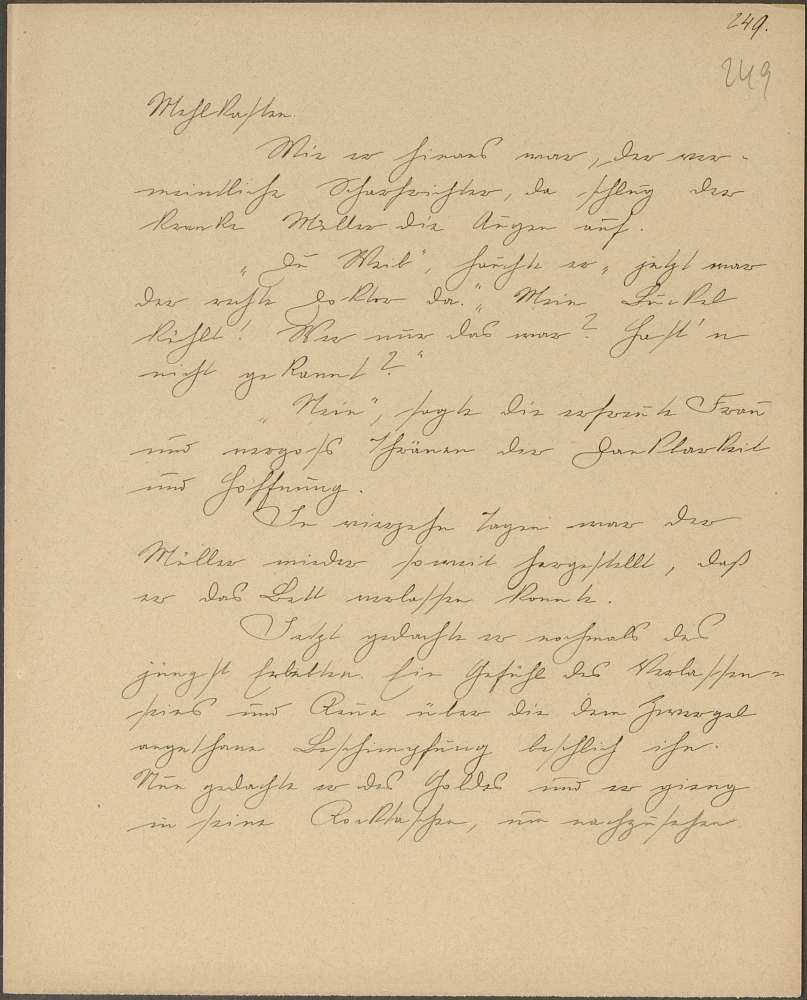 249.
249
Mehlkasten.
Wie er hinaus war, der ver-
meintliche Scharfrichter, da schlug der
kranke Müller die Augen auf.
„Du Weib“, hauchte er „jetzt war
der rechte Doktor da.“ „Mein Buckel
kühlt! Wer nur das war? Hast'n
nicht gekannt?“
„Nein“, sagte die erfreute Frau
und vergoss Thränen der Dankbarkeit
und Hoffnung.
In vierzehn Tagen war der
Müller wieder soweit hergestellt, daß
er das Bett verlassen konnte.
Jetzt gedachte er nochmals des
jüngst Erlebten. Ein Gefühl des Verlassen-
seins und Reue über die dem Zwergel
angethane Beschimpfung beschlich ihn.
Nun gedachte er des Goldes und er gieng
in seine Rocktaschen, um nachzusehen